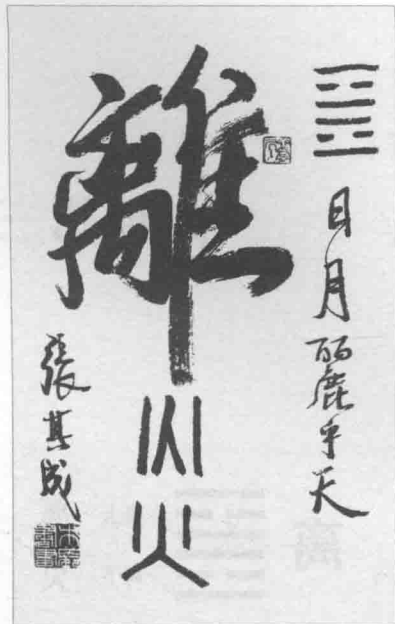 日月麗乎天
離
火
張其成